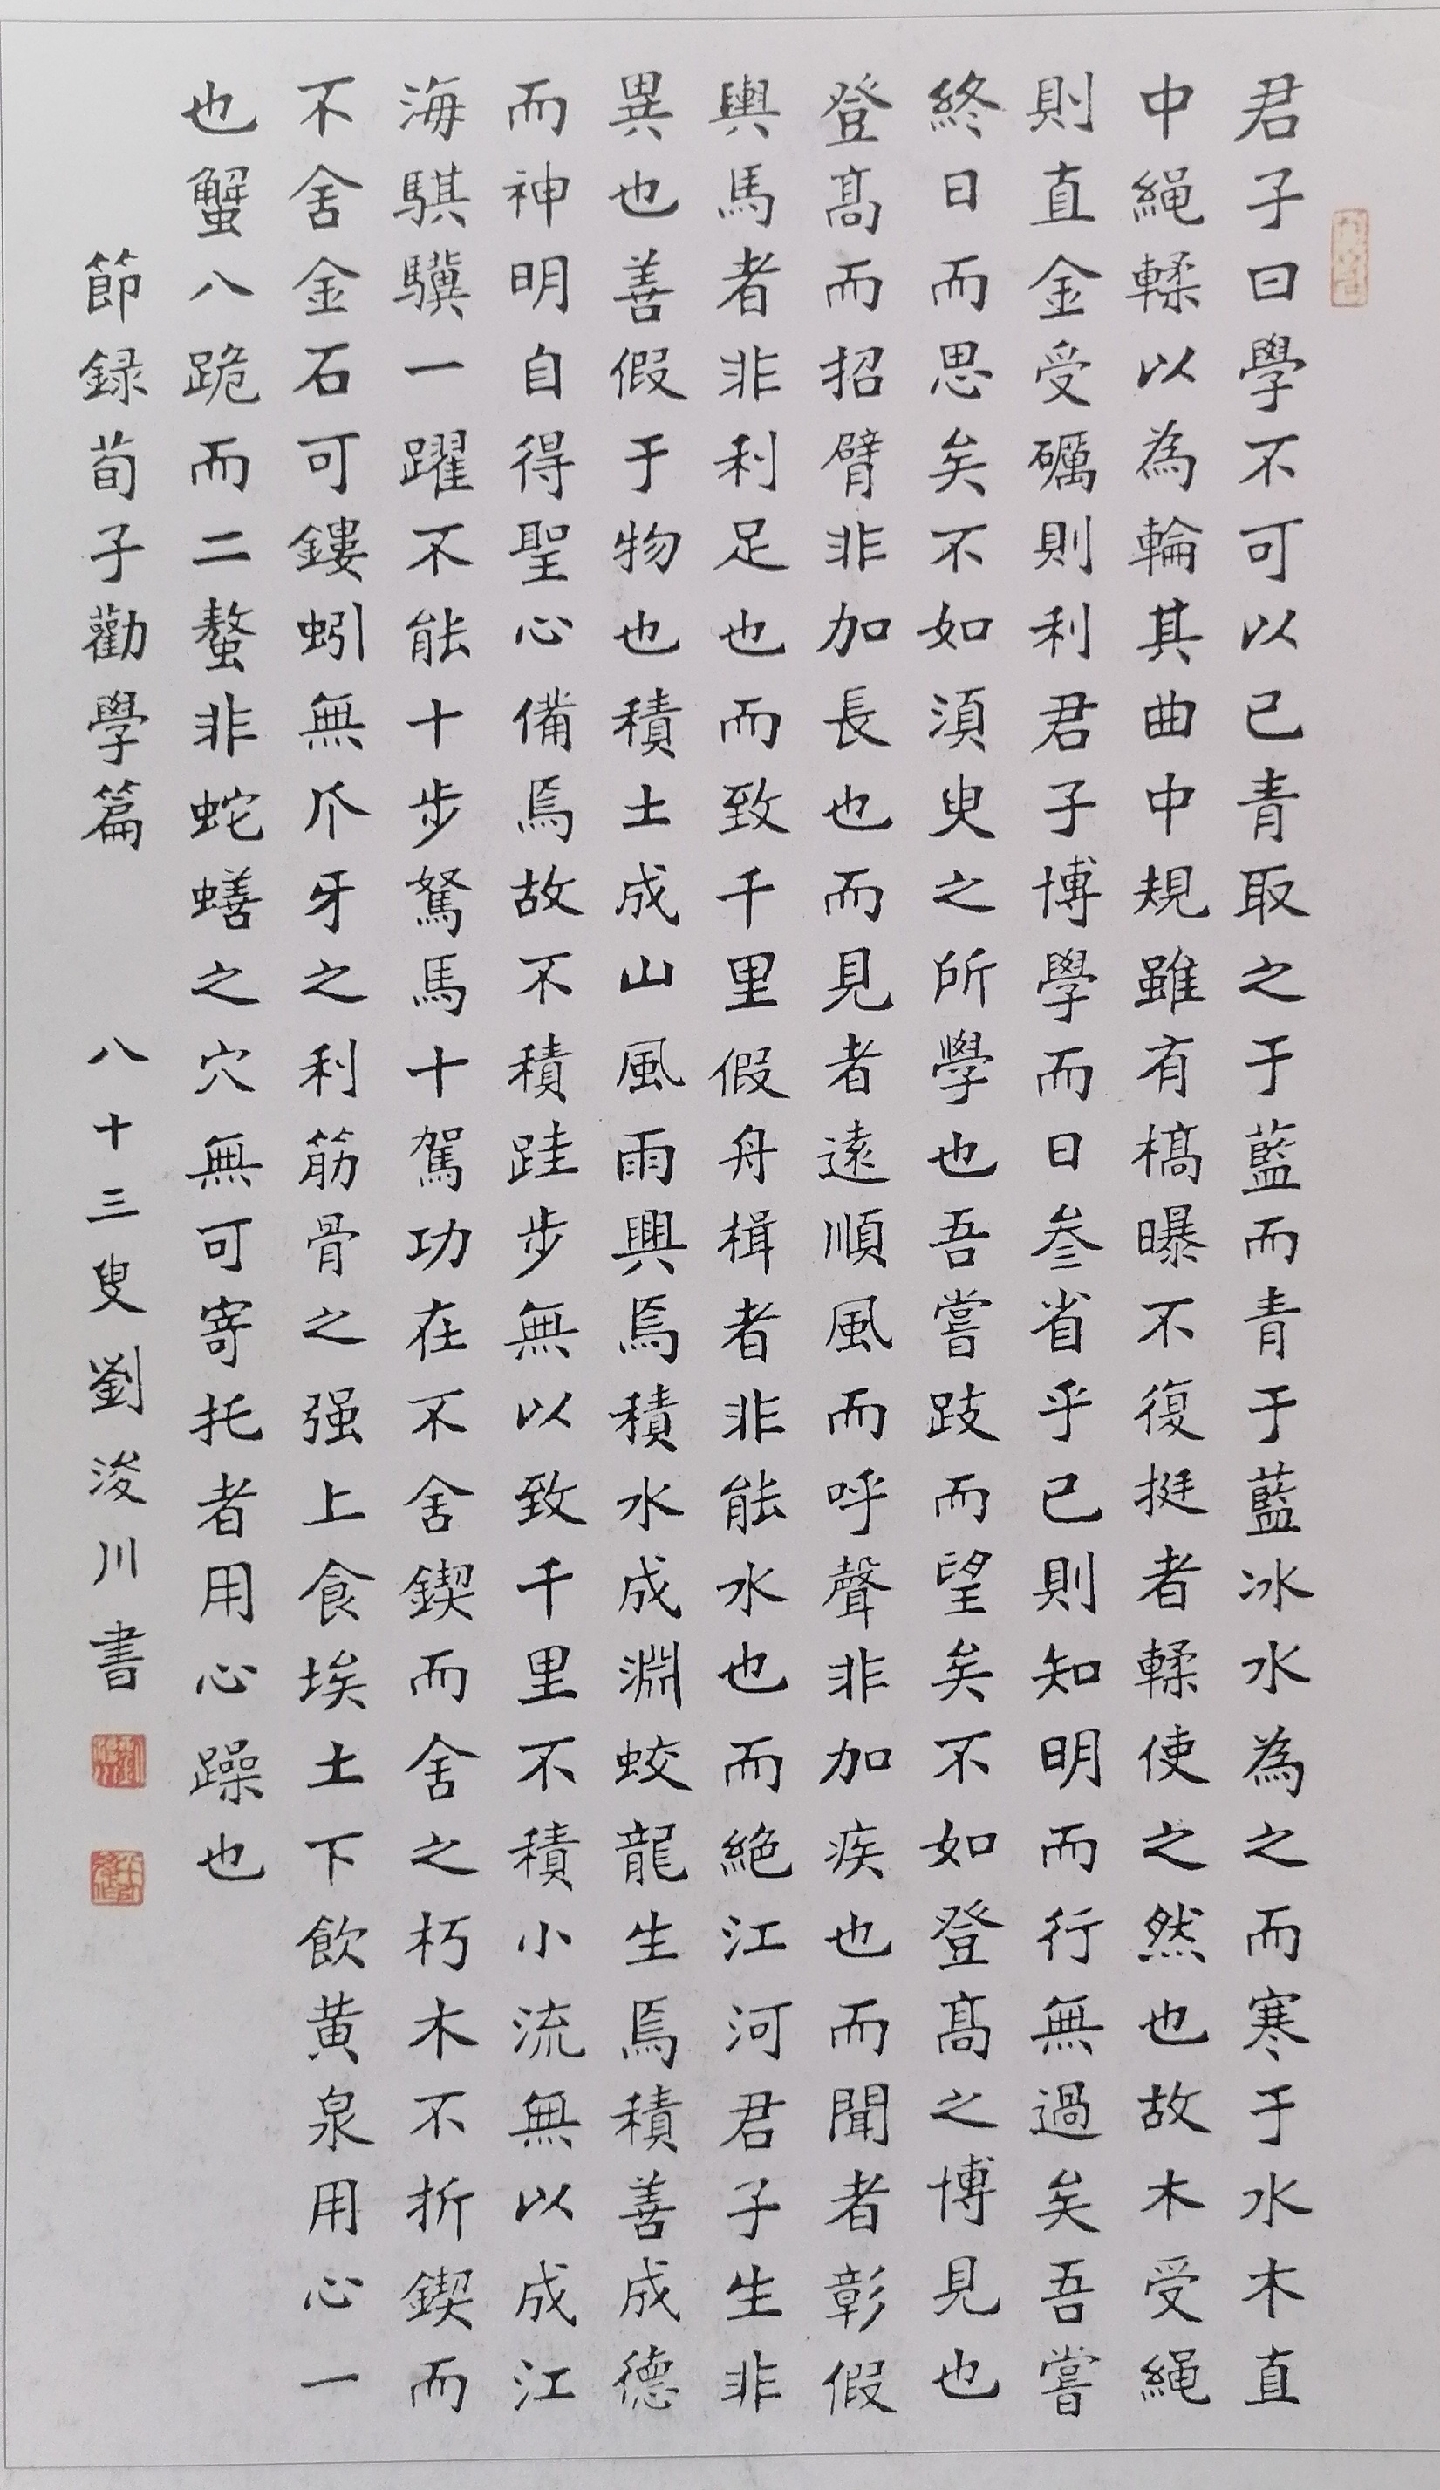 君子曰學不可以已青取之于藍而青于藍冰水為之而寒于水木直
中繩輮以為輪其曲中規雖有槁曝不復挺者輮使之然也故木受繩
則直金受礪則利君子博學而日叁省乎己則知明而行無過矣吾嘗
終日而思矣不如須臾之所學也吾嘗跂而望矣不如登髙之博見也
登髙而招臂非加長也而見者遠順風而呼聲非加疾也而聞者彰假
輿馬者非利足也而致千里假舟楫者非能水也而絶江河君子生非
異也善假于物也積土成山風雨興焉積水成淵蛟龍生焉積善成德
而神明自得聖心備焉故不積跬步無以致千里不積小流無以成江
海騏驥一躍不能十步駑馬十駕功在不舍鍥而舍之朽木不折鍥而
不舍金石可鏤蚓無爪牙之利筋骨之强上食埃土下飲黄泉用心一
也蟹八跪而二螯非蛇蟮之穴無可寄托者用心躁也
節録荀子勸學篇 八十三叟劉浚川書